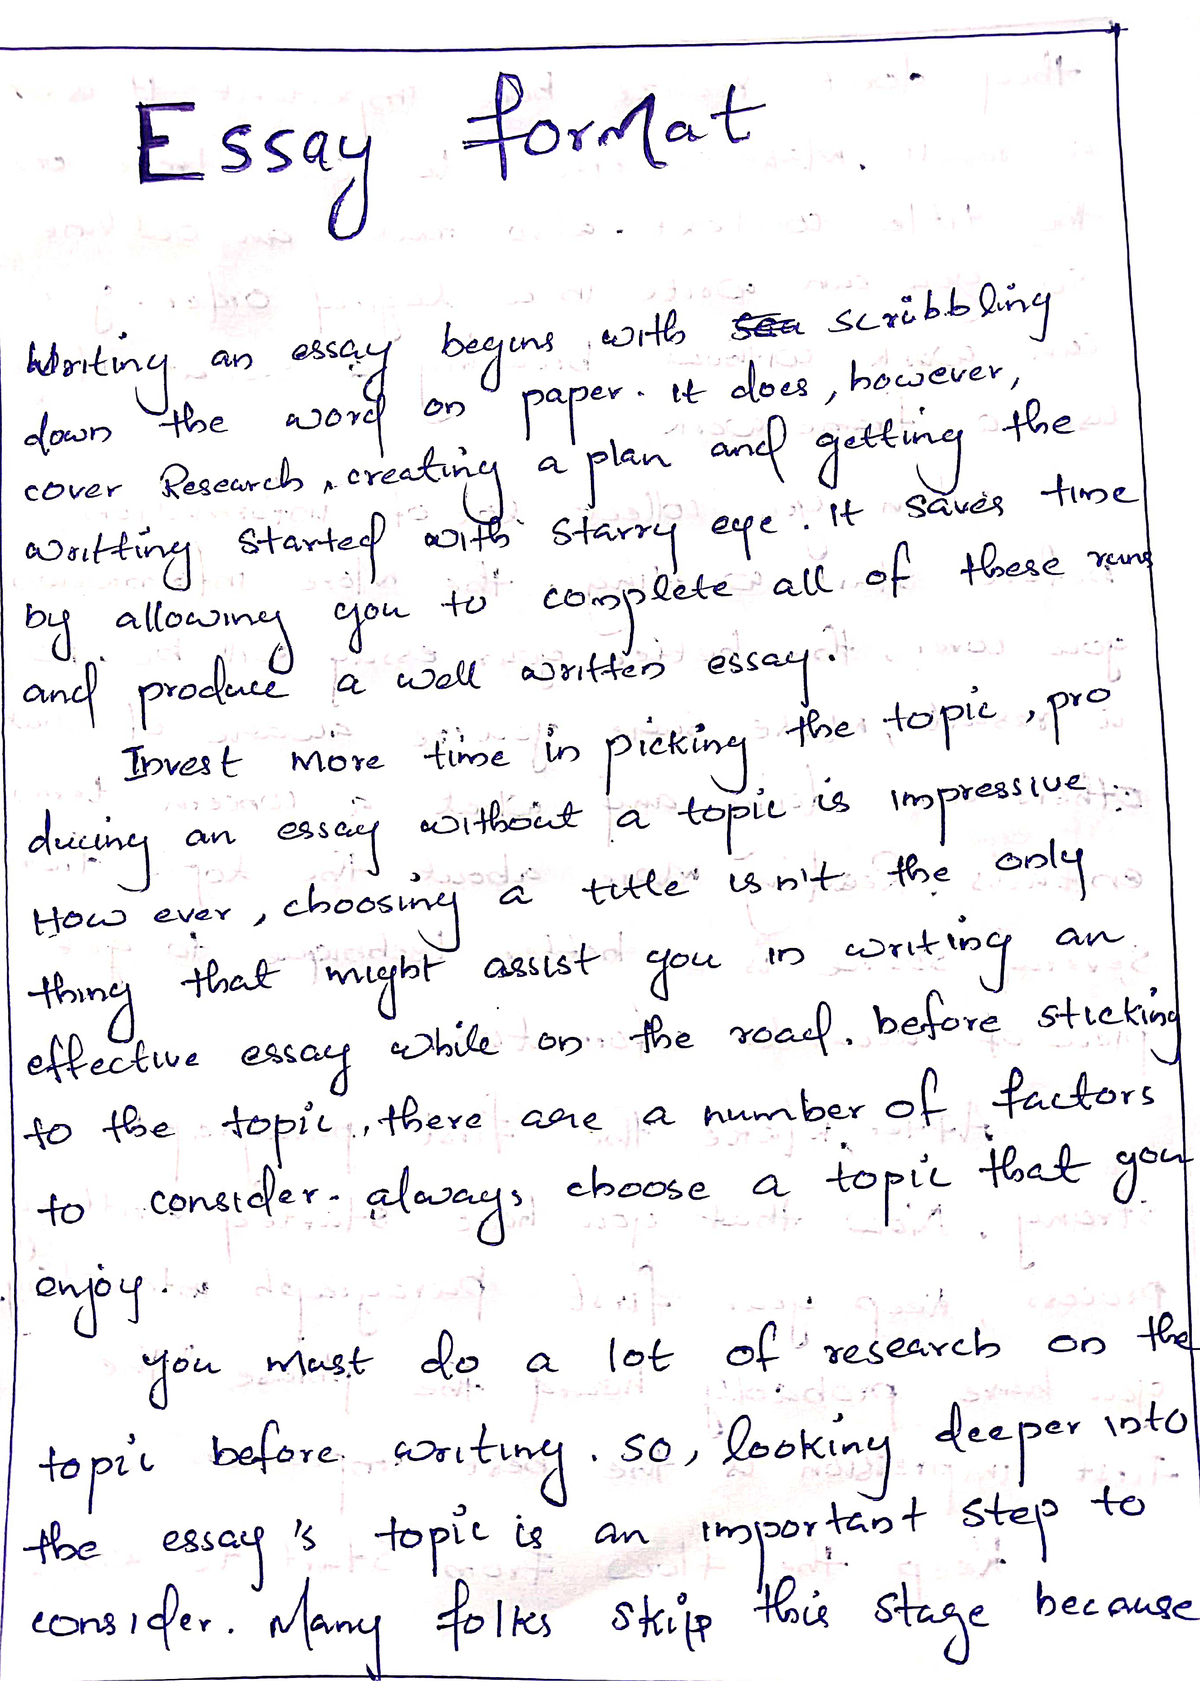 Essay format
Writing an essay begins with scribbling
down the word on paper. it does, however,
cover Research, creating a plan and getting the
writting started with starry eye. It saves time
by allowing you to complete all of these
and produce a well written essay.
Invest more time in picking the topic, pro
ducing an essay without a topic is impressive.
How ever, choosing a title isn't the only
thing that might assist you in writing an
effective essay while on the road. before sticking
to the topic, there are a number of factors
to consider. always choose a topic that you
enjoy.
you must do a lot of research on the
topic before writing. so, looking deeper into
the essay's topic is an important step to
consider. Many folks skip this stage because